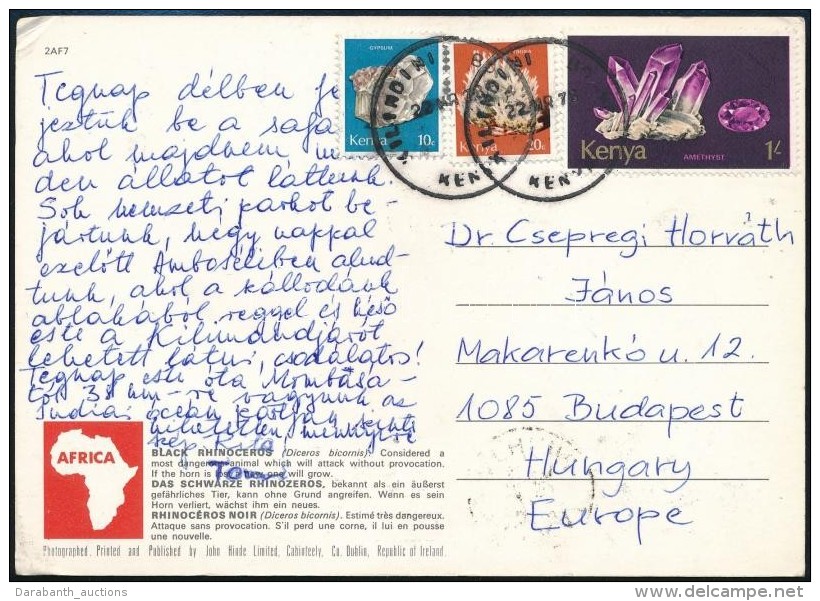 2AF7
Tegnap délben fe
jeztük be a safa
ahol majdnem min
den állatot láttunk.
Sok nemzeti parkot be-
jártunk, négy nappal
ezelőtt Amboseliben alud-
tunk, ahol a szállodánk
ablakából reggel és késő
este a Kilimandjárót
lehetett látni, csodálatos!
Tegnap este óta Mombasa-
tól 38 km-re vagyunk az
Indiai óceán partján
hihetetlen mennyire
szép.
GYPSUM
Kenya 10c
Kenya 20c
Kenya AMETHYST 1/-
KILINDINI
KENYA
KILINDINI
KENYA
Dr. Csepregi Horváth
János
Makarenkó u. 12.
1085 Budapest
Hungary
Europe
AFRICA
BLACK RHINOCEROS (Diceros bicornis). Considered a
most dangerous animal which will attack without provocation.
If the horn is lost a new one will grow.
DAS SCHWARZE RHINOZEROS, bekannt als ein äußerst
gefährliches Tier, kann ohne Grund angreifen. Wenn es sein
Horn verliert, wächst ihm ein neues.
RHINOCÉROS NOIR (Diceros bicornis). Estimé très dangereux.
Attaque sans provocation. S'il perd une corne, il lui en pousse
une nouvelle.
Photographed, Printed and Published by John Hinde Limited, Cabinteely, Co. Dublin, Republic of Ireland.
Darabanth_auctions
delcampe.net